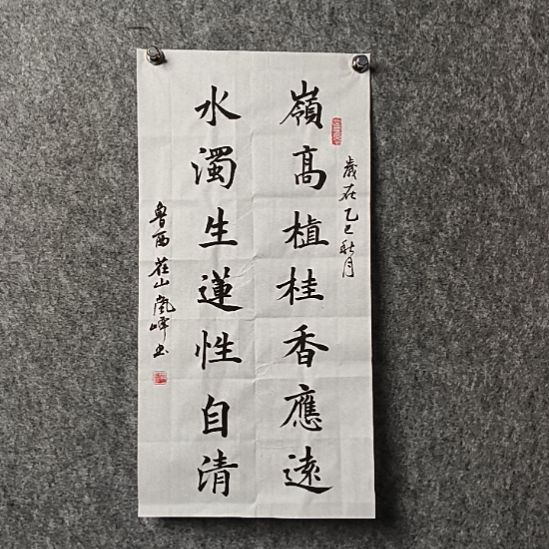 歲在乙巳秋月
嶺高植桂香應遠
水濁生蓮性自清
魯西莊山嵐峰书